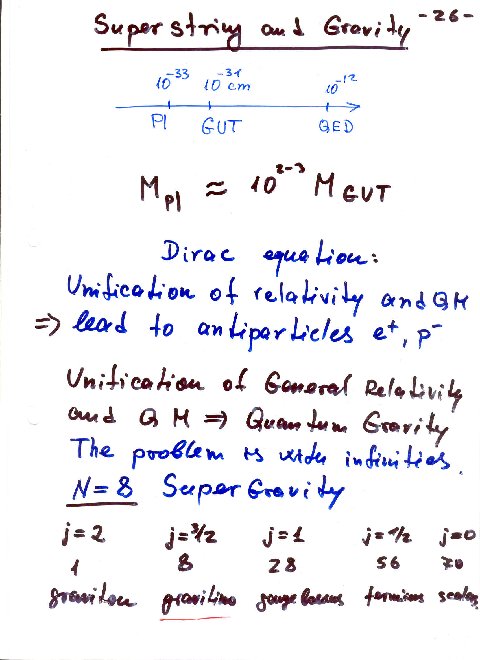 Superstring and Gravity -26-
10^-33 10^-31 cm 10^-12
Pl GUT QED
M_Pl ≈ 10^2-3 M_GUT
Dirac equation:
Unification of relativity and QM
⇒ lead to antiparticles e⁺, p⁻
Unification of General Relativity
and QM ⇒ Quantum Gravity
The problem is with infinities.
N=8 SuperGravity
j=2 j=3/2 j=1 j=1/2 j=0
1 8 28 56 70
graviton gravitino gauge bosons fermions scalars